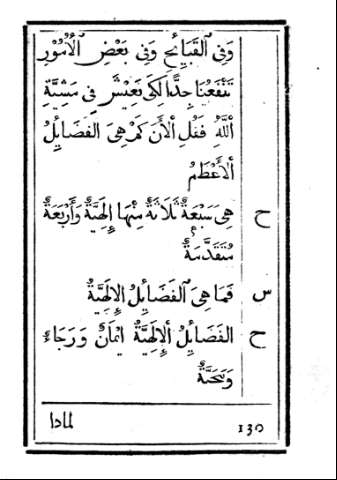 وَفِي ٱلقَبَائِحِ وَفِي بَعْضِ ٱلأُمُوْرِ
تَنْفَعُنَا جِدًّا لِكَي نَعِيْشَ فِي مَشِيَّةِ
ٱللَّهِ فَقُلِ ٱلأَنَ كَمْ هِيَ الفَضَايِلُ
ٱلأَعْظَمُ
ح هِيَ سَبْعَةٌ ثَلَاثَةٌ مِنْهَا إِلَهِيَّةٌ وَأَرْبَعَةٌ
مُتَقَدَّمَةٌ
س فَمَا هِيَ ٱلفَضَايِلُ الإِلَهِيَّةُ
ح الفَضَايِلُ ٱلإِلَهِيَّةُ اِيْمَانٌ وَرَجَاءٌ
وَمَحَبَّةٌ
130 لماذا